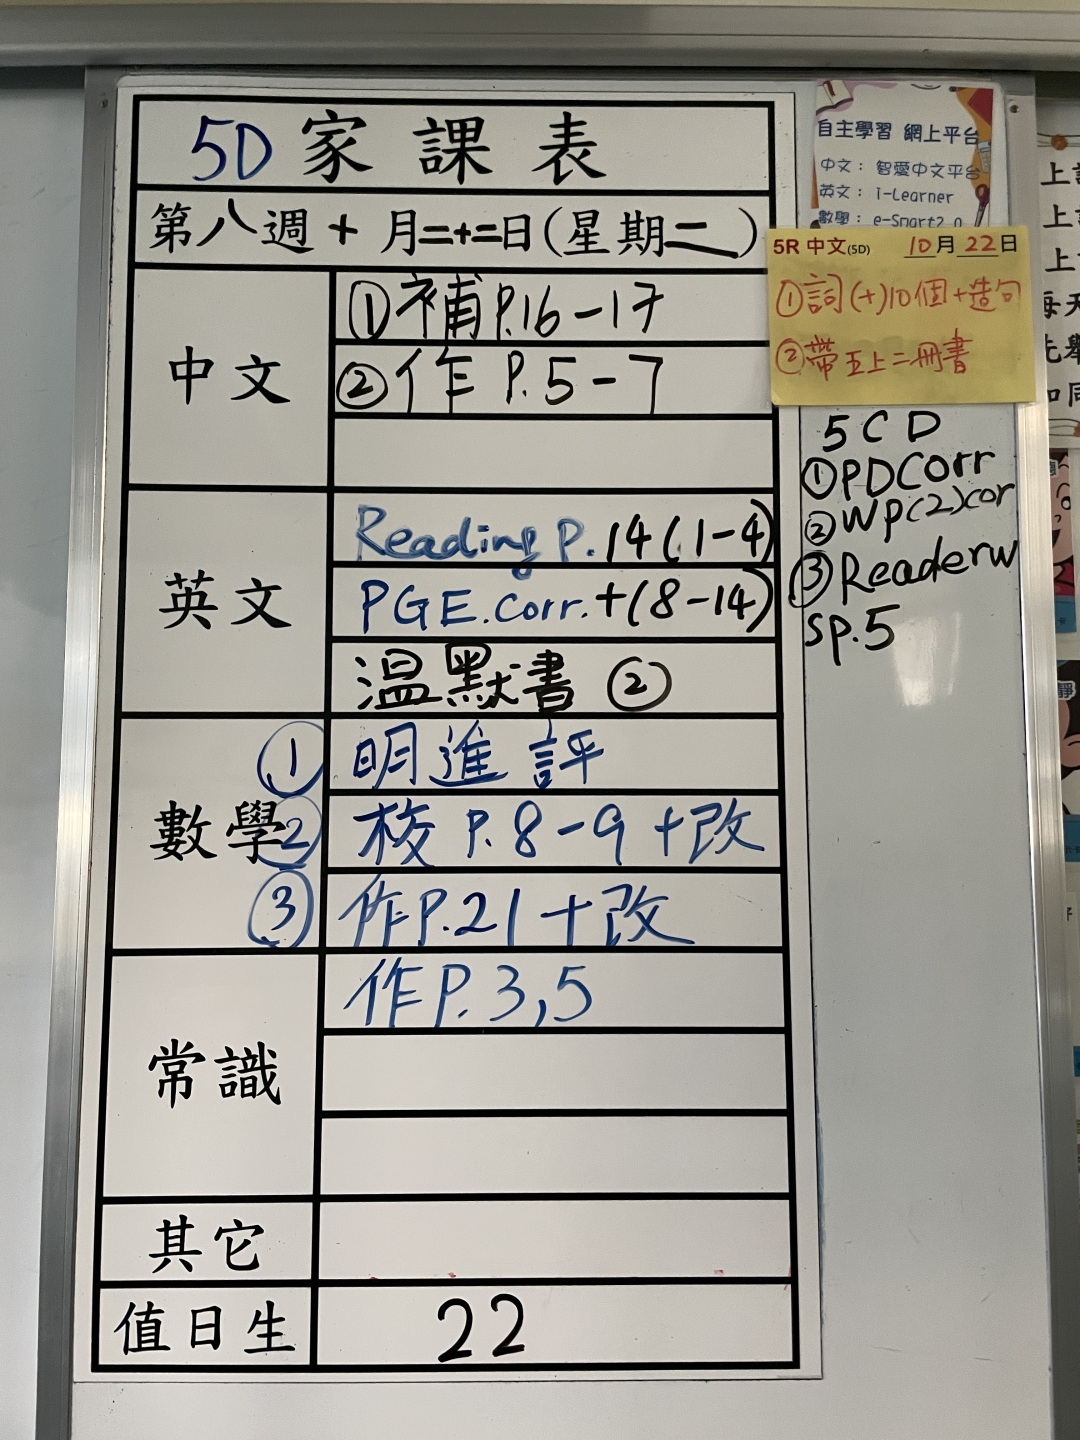 5D 家課表
第八週 十月二十二日(星期二)
中文
①補P.16-17
②作 P.5-7
英文
Reading P.14(1-4)
PGE.Corr.+(8-14)
溫默書②
數學
① 明進評
② 校 P.8-9+改
③ 作P.21+改
常識
作P.3,5
其它
值日生
22
自主學習 網上平台
中文: 智愛中文平台
英文: i-Learner
數學: e-Smart2.0
5R 中文(5D) 10月22日
①詞(+)10個+造句
②帶五上二冊書
5CD
①PDCorr
②WP(2)cor
③Readerw
sp.5